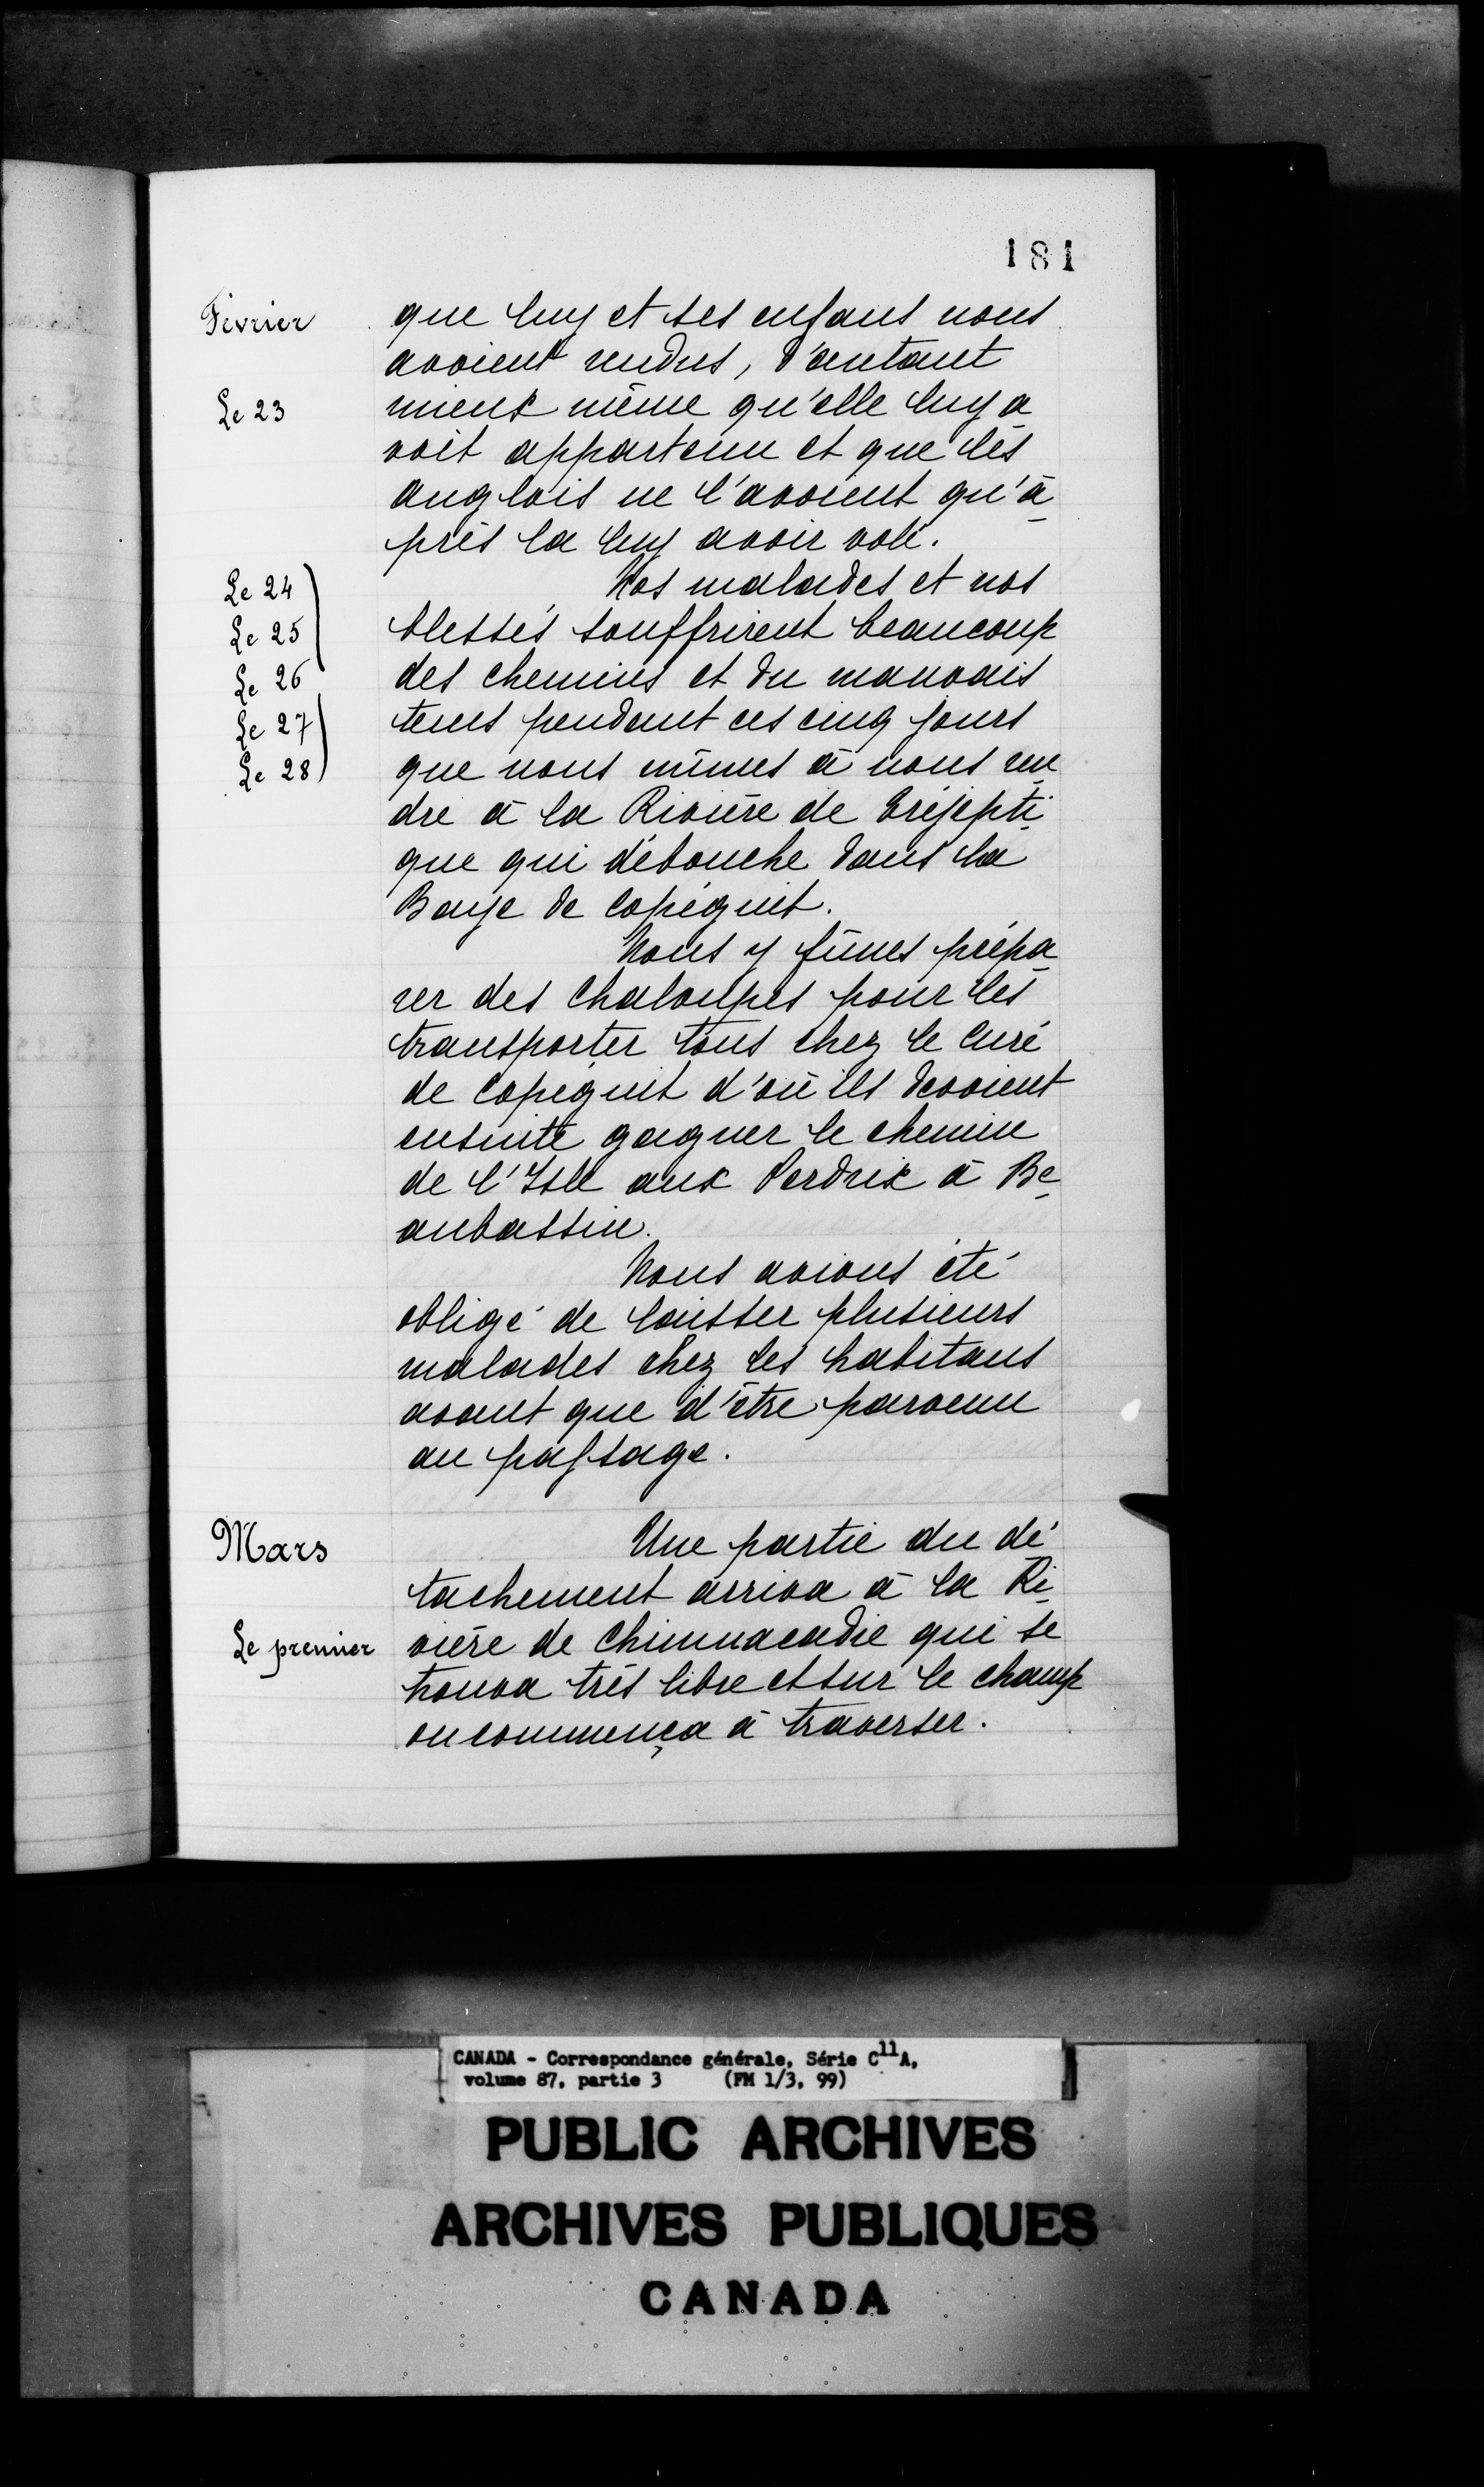 181
Février
que luy et ses enfans nous
avoient rendus, d'autant
Le 23
mieux même qu'elle luy a
voit appartenu et que les
anglois ne l'avoient qu'a
près la luy avoir volé.
Le 24
Nos malades et nos
Le 25
blessés souffrirent beaucoup
Le 26
des chemins et du mauvais
Le 27
tems pendant ces cinq jours
Le 28
que nous mîmes à nous ren
dre à la Rivière de
que qui débouche dans la
Baye de Copéguit.
Nous y fûmes prépa
rer des chaloupes pour les
transporter tous chez le Curé
de Copéguit d'où ils devoient
ensuite gagner le chemin
de l'Isle aux Perdrix à Be
aubassin.
Nous avions été
obligé de laisser plusieurs
malades chez les habitans
avant que d'être parvenu
au passage.
Mars
Une partie du dé
tachement arriva à la Ri
Le premier
vière de Chimnacadie qui se
trouva très libre et sur le champ
on commença à traverser.
CANADA - Correspondance générale, Série C11A,
volume 87, partie 3 (FM 1/3, 99)
PUBLIC ARCHIVES
ARCHIVES PUBLIQUES
CANADA